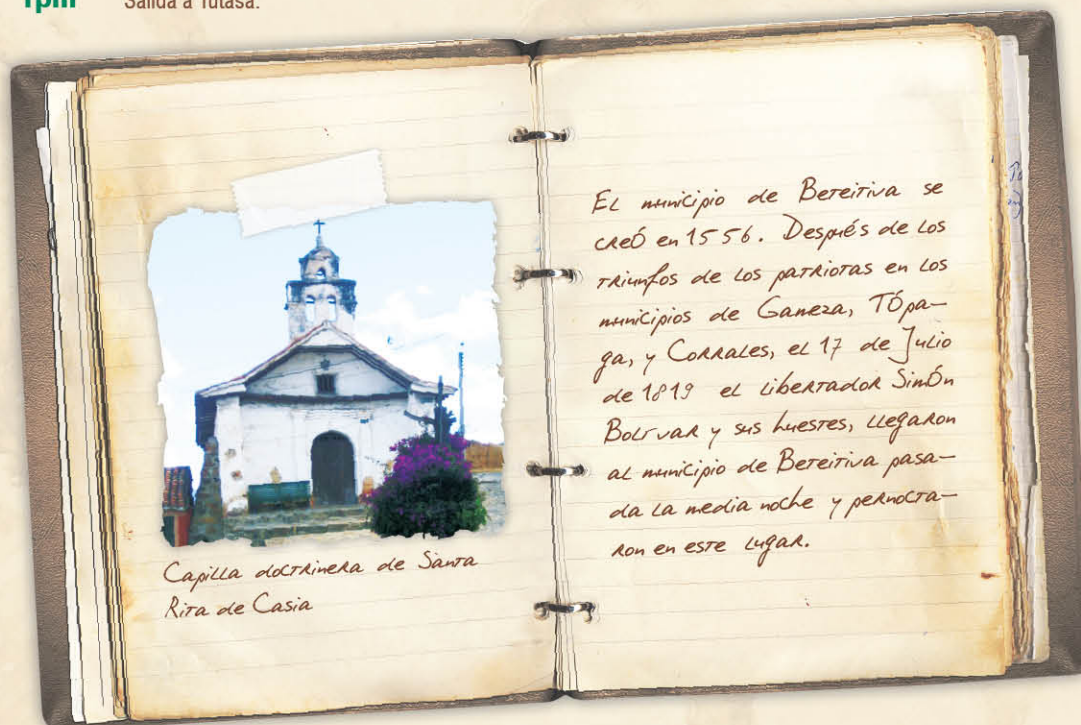 1pm Salida a Tutasa.
Capilla doctrinera de Santa
Rita de Casia
El municipio de Beteitiva se
creó en 1556. Después de los
triunfos de los patriotas en los
municipios de Gameza, Tópa-
ga, y Corrales, el 17 de Julio
de 1819 el libertador Simón
Bolívar y sus huestes, llegaron
al municipio de Beteitiva pasa-
da la media noche y pernocta-
ron en este lugar.